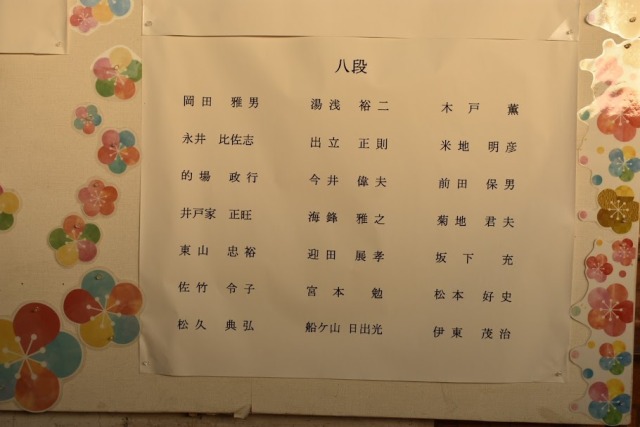 八段
岡田 雅男 湯浅 裕二 木戸 薫
永井 比佐志 出立 正則 米地 明彦
的場 政行 今井 偉夫 前田 保男
井戸家 正旺 海鋒 雅之 菊地 君夫
東山 忠裕 迎田 展孝 坂下 充
佐竹 令子 宮本 勉 松本 好史
松久 典弘 船ケ山 日出光 伊東 茂治